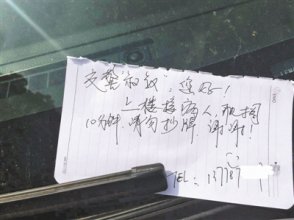 交警“叔叔”，您好！
上楼接病人，只用
10分钟，请勿抄牌，谢谢！
TEL：13778